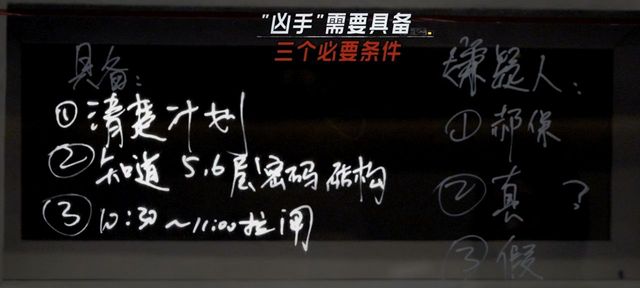 "凶手"需要具备
三个必要条件
具备：
①清楚计划
②知道5.6层密码结构
③10:30~11:00拉闸
嫌疑人：
①郝保
②真 ?
③假